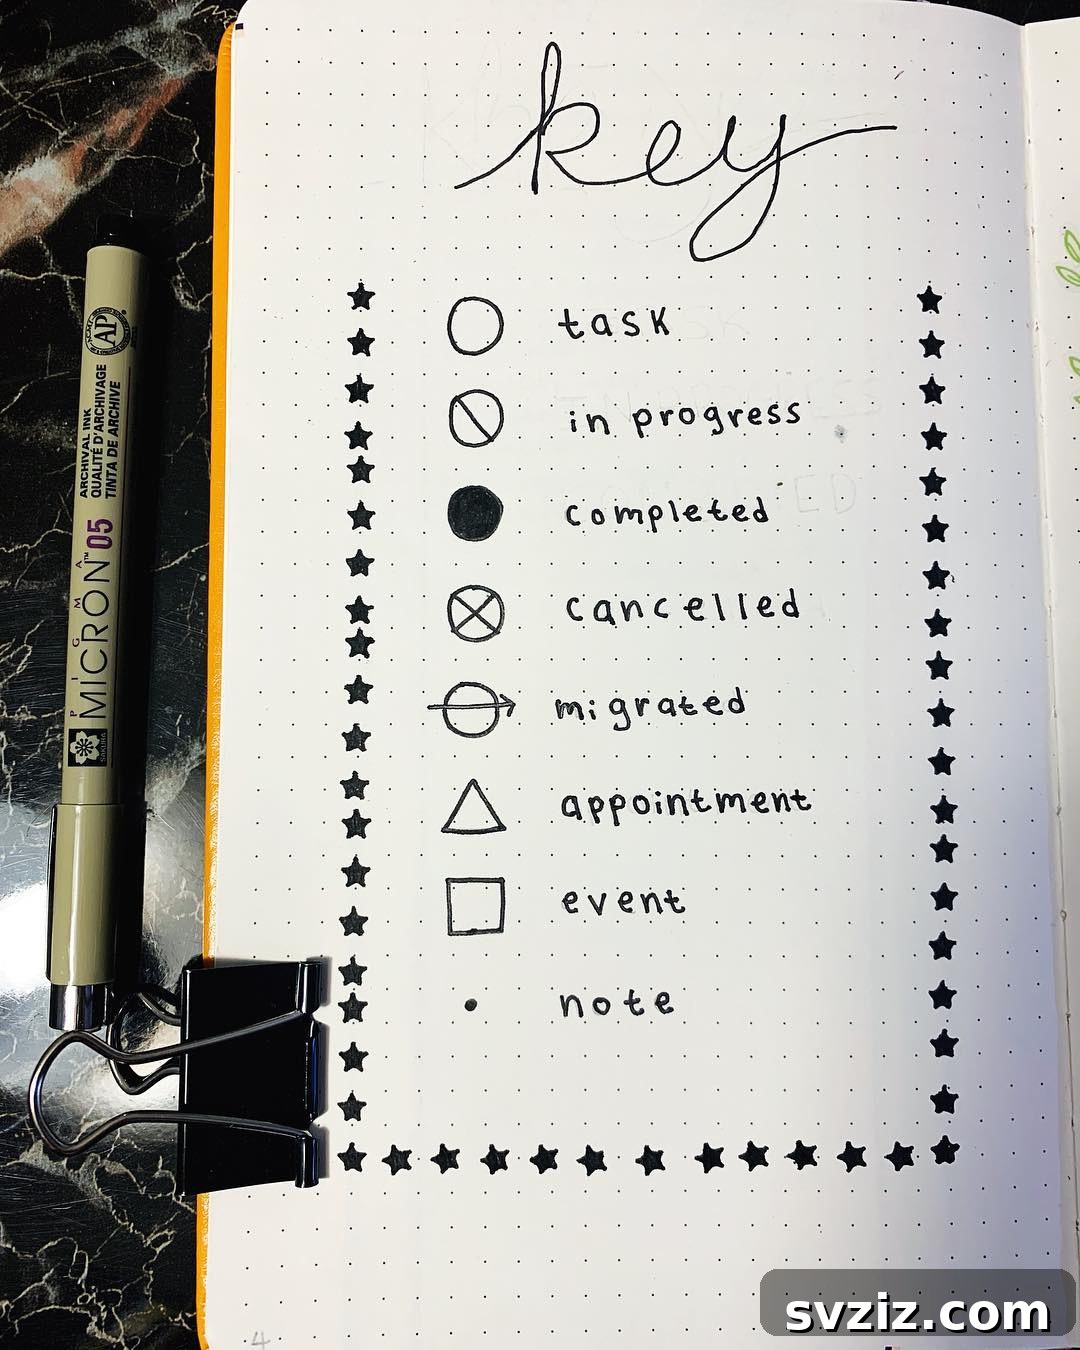 key
task
in progress
completed
cancelled
migrated
appointment
event
note
4
AP
ARCHIVAL INK
QUALITÉ D'ARCHIVAGE
TINTA DE ARCHIVE
PIGMA
MICRON™ 05
SAKURA
svziz.com